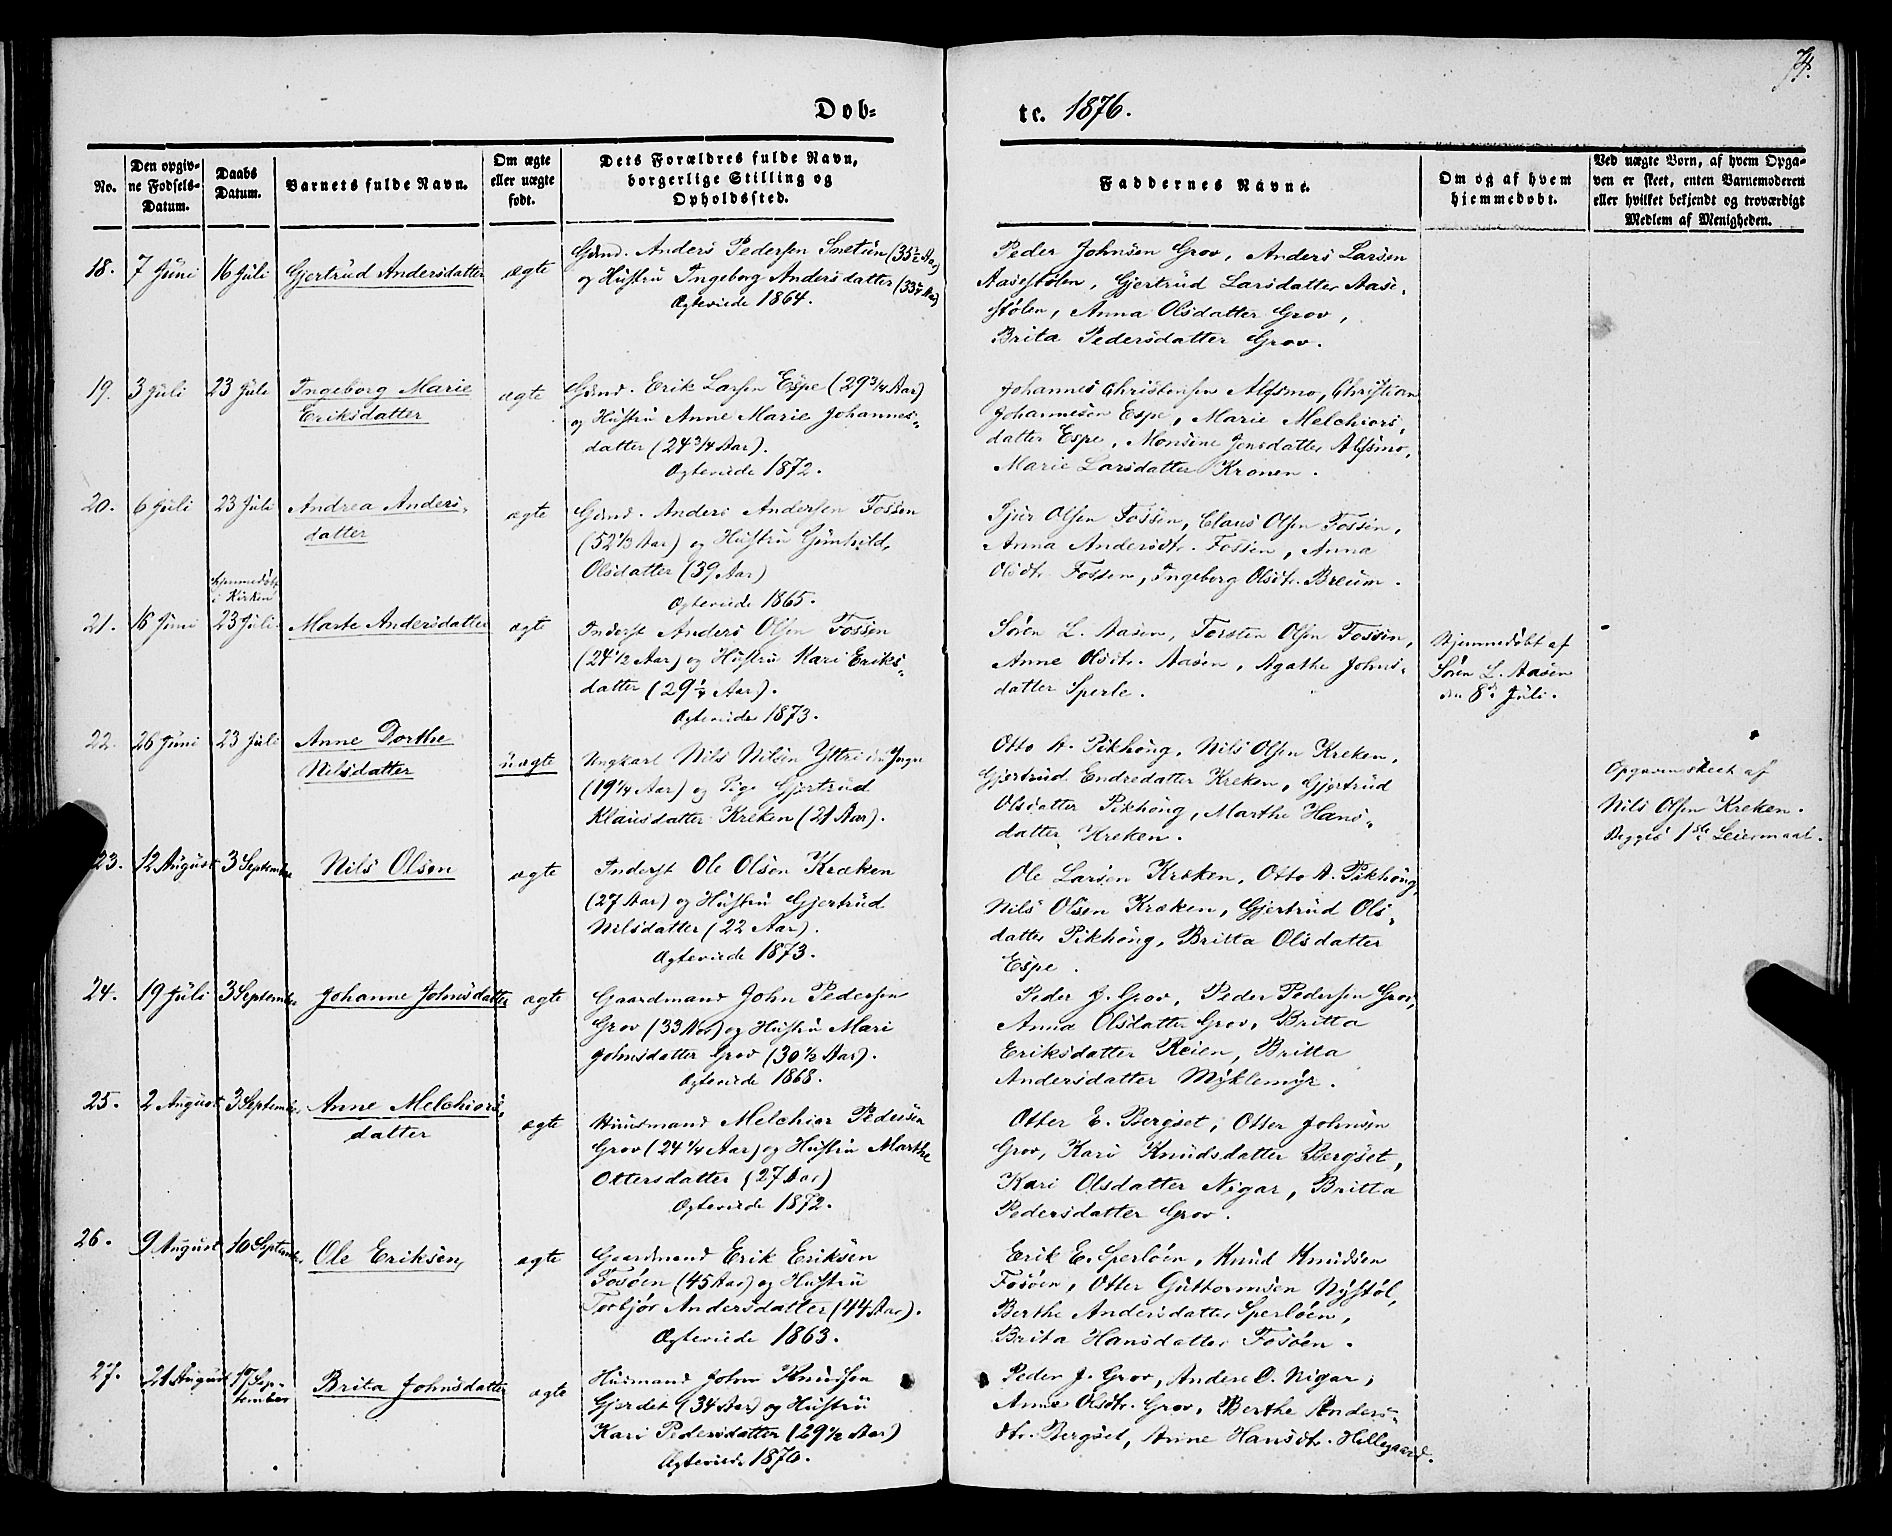 74.
Døb-
te. 1876.
No.
Den opgiv-
ne Fødsels-
Datum.
Daabs
Datum.
Barnets fulde Navn.
Om ægte
eller uægte
født.
Dets Forældres fulde Navn,
borgerlige Stilling og
Opholdssted.
Faddernes Navne.
Om og af hvem
hjemmedøbt.
Ved uægte Børn, af hvem Opga-
ven er skeet, enten Barnemoderen
eller hvilket bekjendt og troværdigt
Medlem af Menigheden.
18. 7 Juni 16 Juli Gjertrud Andersdatter ægte
Gbmd. Anders Pedersen Snetun (35½ Aar)
og Hustru Ingeborg Andersdatter
Ægteviede 1864.
Peder Johnsen Grov, Anders Larsen
Aasestølen, Gjertrud Larsdatter Aase-
stølen, Anna Olsdatter Grov,
Brita Pedersdatter Grov.
19. 3 Juli 23 Juli Ingeborg Marie
Eriksdatter
ægte
Gbmd. Erik Larsen Espe (29 3/4 Aar)
og Hustru Anne Marie Johannes-
datter (24 3/4 Aar).
Ægteviede 1872.
Johannes Christensen Alfsmo, Christian
Johannesen Espe, Marie Melchiors-
datter Espe, Monsine Jensdatter Alfsmo,
Marie Larsdatter Kronen.
20. 6 Juli 23 Juli Andrea Anders-
datter
ægte
Gbmd. Anders Andersen Fossen
(52 1/3 Aar) og Hustru Gunhild
Olsdatter (39 Aar)
Ægteviede 1865.
Sjur Olsen Fossen, Claus Olsen Fossen,
Anna Andersdtr. Fossen, Anna
Olsdtr. Fossen, Ingeborg Olsdtr. Breum.
21. 16 Juni
hjemmedøbt
i Kirken
23 Juli Marte Andersdatter ægte
Inderst Anders Olsen Fossen
(24 1/2 Aar) og Hustru Kari Eriks-
datter (29 1/4 Aar).
Ægteviede 1873.
Søren L. Aasen, Torsten Olsen Fossen,
Anne Olsdtr. Aasen, Agathe Johns-
datter Sperle.
Hjemmedøbt af
Søren L. Aasen
den 8de Juli.
22. 26 Juni 23 Juli Anne Dorthe
Nilsdatter
uægte
Ungkarl Nils Nilsen Yttri
(19 1/4 Aar) og Pige Gjertrud
Klausdatter Kreken (21 Aar).
Otto A. Pikhoug, Nils Olsen Kreken,
Gjertrud Endredatter Kreken, Gjertrud
Olsdatter Pikhoug, Marthe Hans-
datter Kreken.
Opgaven skeet af
Nils Olsen Kreken.
Begges 1ste Leiermaal.
23. 12 August 3 September Nils Olsen ægte
Inderst Ole Olsen Kræken
(27 Aar) og Hustru Gjertrud
Nilsdatter (22 Aar).
Ægteviede 1873.
Ole Larsen Kræken, Otto A. Pikhoug,
Nils Olsen Kræken, Gjertrud Ols-
datter Pikhoug, Britta Olsdatter
Espe.
24. 19 Juli 3 September Johanne Johnsdatter ægte
Gaardmand John Pedersen
Grov (33 Aar) og Hustru Mari
Johnsdatter Grov (30 1/2 Aar).
Ægteviede 1868.
Peder J. Grov, Peder Pedersen Grov,
Anna Olsdatter Grov, Britta
Eriksdatter Reien, Britta
Andersdatter Myklemyr.
25. 2 August 3 September Anne Melchiors-
datter
ægte
Huusmand Melchior Pedersen
Grov (24 1/4 Aar) og Hustru Marthe
Ottersdatter (27 Aar)
Ægteviede 1872.
Otter E. Bergset, Otter Johnsen
Grov, Kari Knudsdatter Bergset,
Kari Olsdatter Nigar, Britta
Pedersdatter Grov.
26. 9 August 10 September Ole Eriksen ægte
Gaardmand Erik Eriksen
Fosøen (45 Aar) og Hustru
Torbjør Andersdatter (44 Aar).
Ægteviede 1863.
Erik E. Sperløen, Knud Knudsen
Fosøen, Otter Guttormsen Nystøl,
Berthe Andersdatter Sperløen,
Brita Hansdatter Fosøen.
27. 21 August 17 Sep-
tember
Brita Johnsdatter ægte
Husmand John Knudsen
Gjerdet (34 Aar) og Hustru
Kari Pedersdatter (29 1/2 Aar)
Ægteviede 1870.
Peder J. Grov, Anders O. Nigar,
Anne Olsdtr. Grov, Berthe Anders-
dtr. Bergset, Anne Hansdtr. Hillegaard.